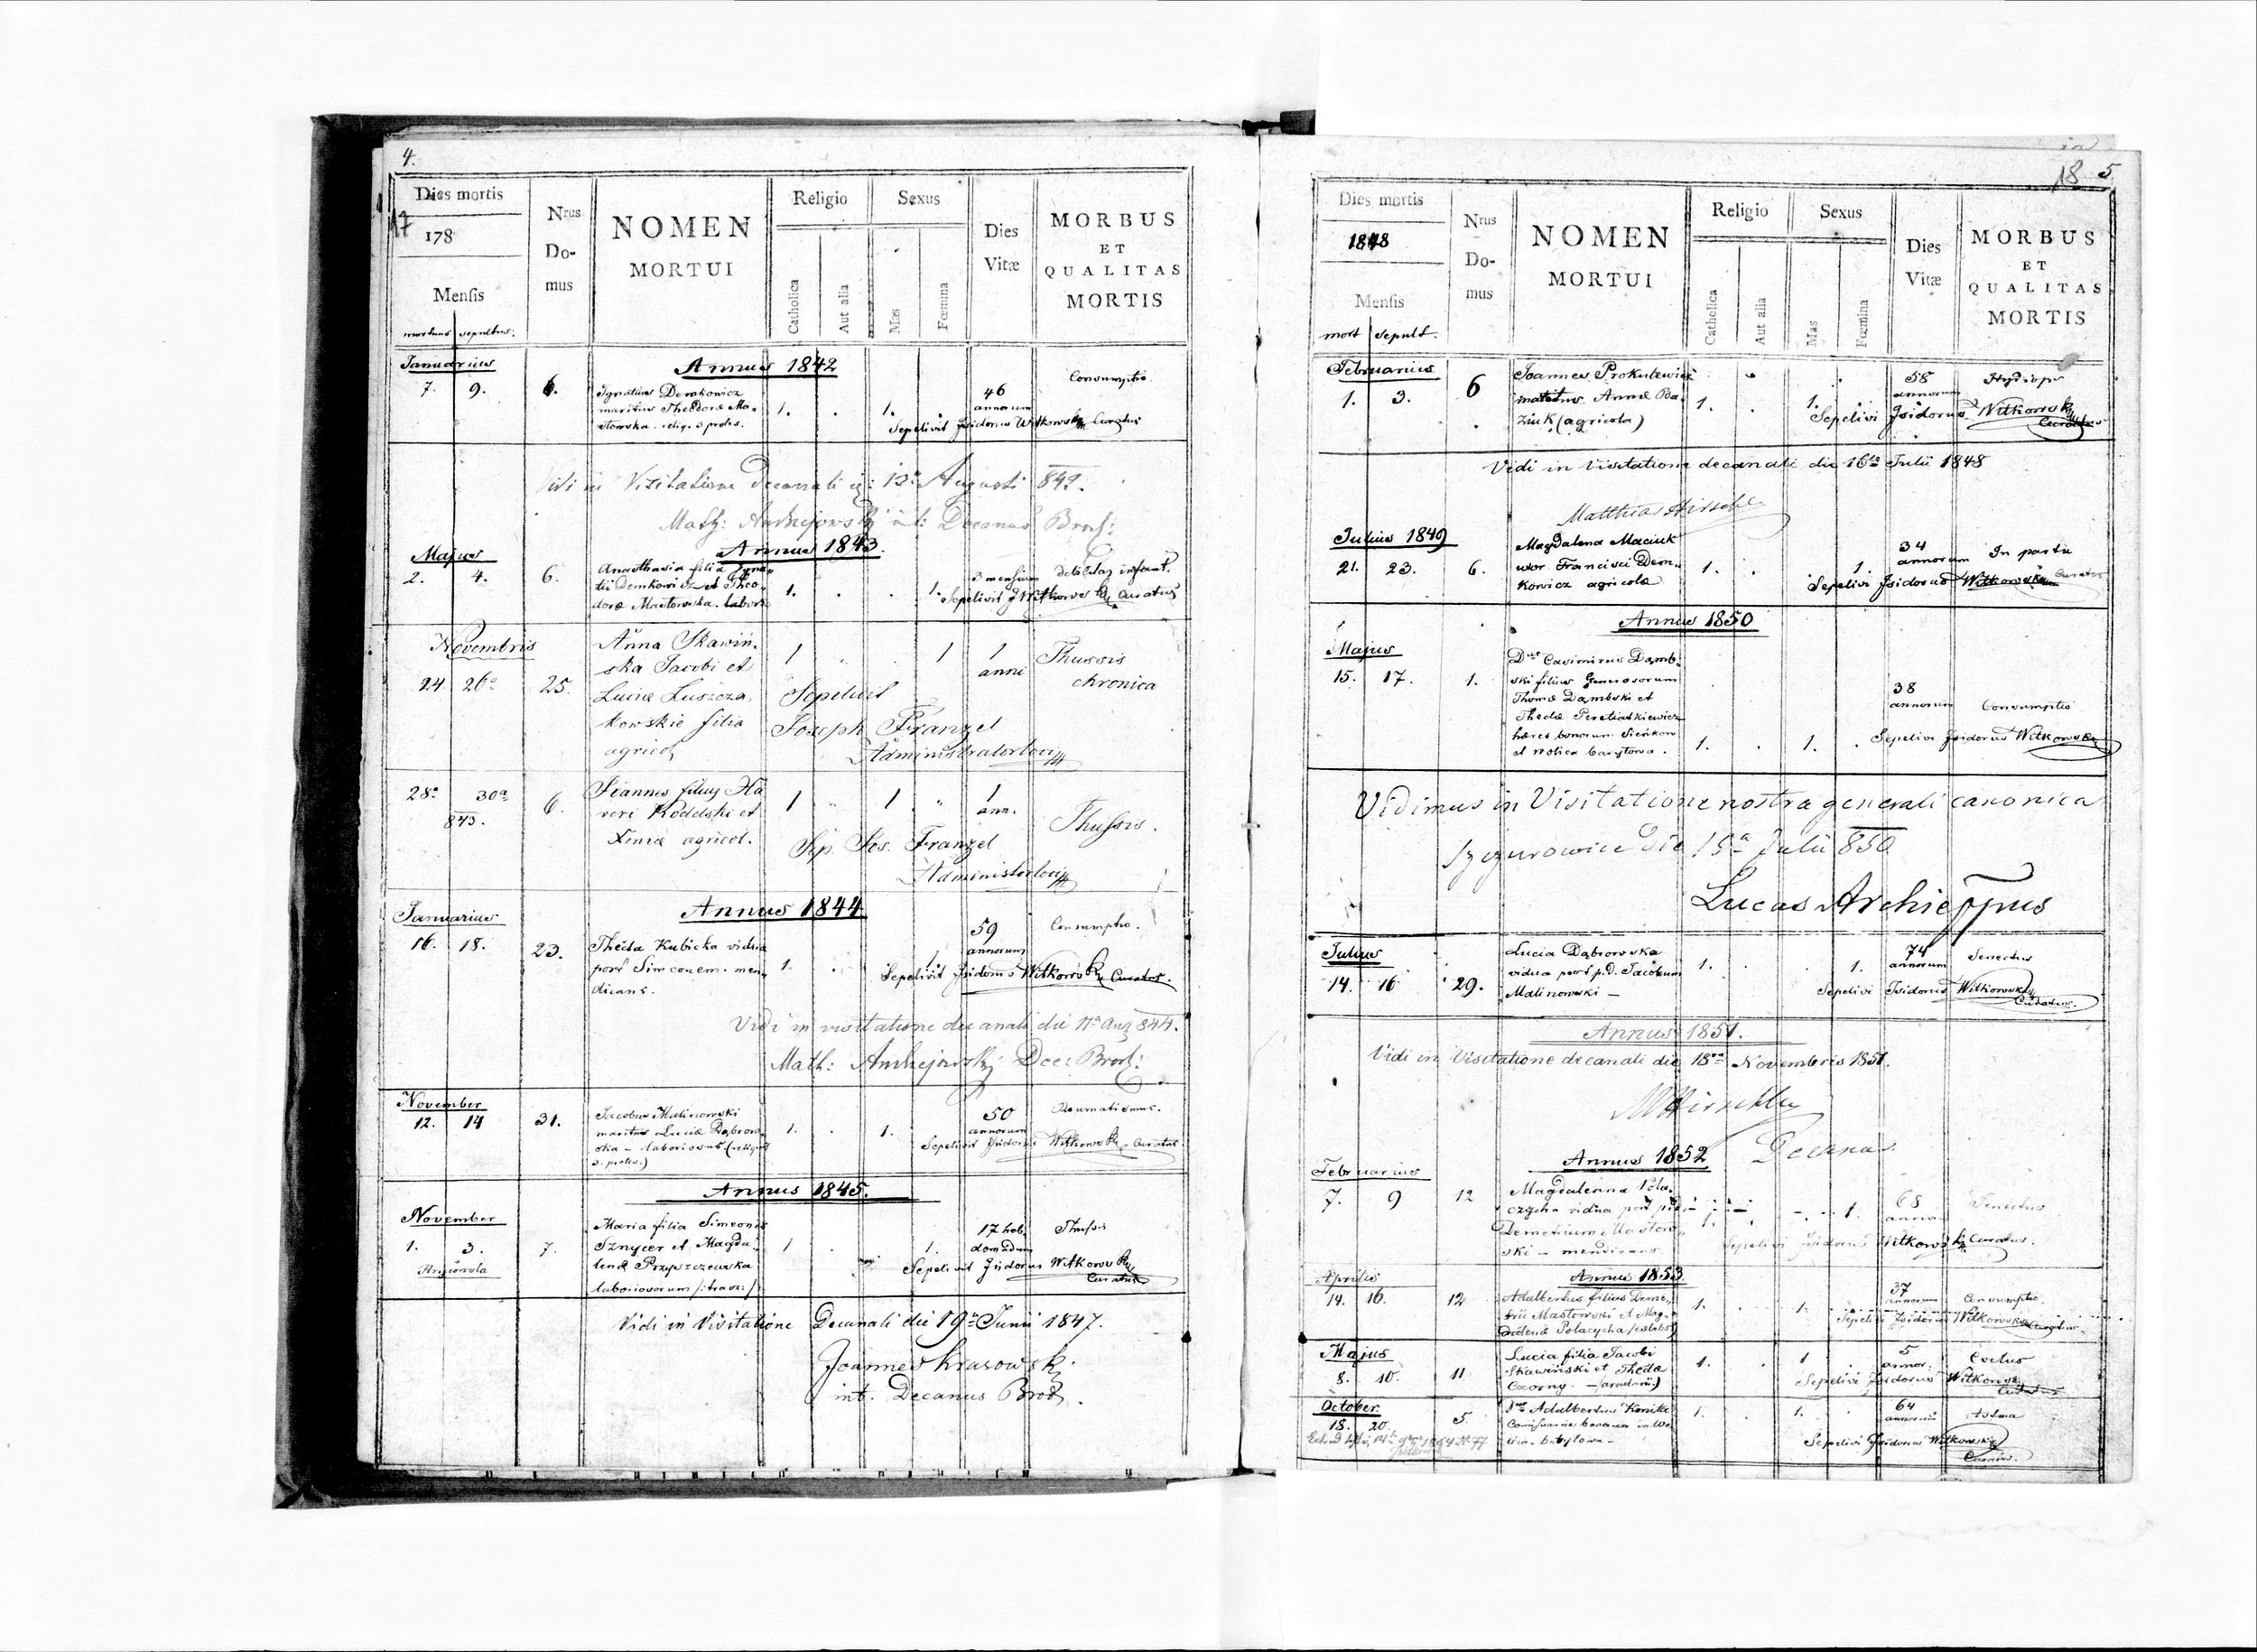 4.
Dies mortis
17
178
Mensis
mortuus sepultus.
Nrus
Do-
mus
NOMEN
MORTUI
Religio
Catholica
Aut alia
Sexus
Mas
Fœmina
Dies
Vitæ
MORBUS
ET
QUALITAS
MORTIS
Januarius
Annus 1842
7. 9. 6.
Ignatius Demkowicz
maritus Theodoræ Ma-
słowska. relig. 3 proles.
1. . 1.
46
annorum
Consumptio.
Sepelivit Isidorus Witkowski Curatus
Vidi in Visitatione Decanali
Augusti 842.
Math: Andrejowski Decanus Brod:
Majus
Annus 1843.
2. 4. 6.
Anasthasia filia Igna-
tii Demkowicz et Theo-
doræ Masłowska. labor.
1. . . 1.
3 mensium
debilitas infant.
Sepelivit J Witkowski Curatus
Novembris
24 26a 25.
Anna Skawiń-
ska Jacobi et
Luciæ Łuszcza-
kowskie filia
agricol
1 1
1
anni
Thussis
chronica
Sepelivit
Joseph Franzel
Administrator loci
28a 30a 6.
843.
Joannes filius Xa
veri Koddski et
Xenia agricol.
1 1
1
ann.
Thussis.
Sep. Jos. Franzel
Administ loci
Annus 1844
Januarius
16. 18. 23.
Theda Kubicka vidua
post Simeonem. men-
dicans.
1. . 1.
59
annorum
Consumptio.
Sepelivit Isidorus Witkowski Curatus.
Vidi in visitatione decanali die 11a Aug 844.
Math: Andrejowski Dec: Brod:
November
12. 14 31.
Jacobus Malinowski
maritus Luciæ Dąbrow-
ska - laboriosus (reliquit
3. proles.)
1. . 1.
50
annorum
Reumatismus.
Sepelivit Isidorus Witkowski Curatus.
Annus 1845.
November
1. 3. 7.
Maria filia Simeonis
Sznycer et Magda-
lenæ Przepszczewska
laboriosorum
1 . 1.
17 heb.
domadum
Thussis
Sepelivit Isidorus Witkowski
Curatus
Vidi in Visitatione Decanali die 19a Junii 1847.
Joannes Krasowski
int. Decanus Brod.
18 5
Dies mortis
1848
Mensis
mort sepult.
Nrus
Do-
mus
NOMEN
MORTUI
Religio
Catholica
Aut alia
Sexus
Mas
Fœmina
Dies
Vitæ
MORBUS
ET
QUALITAS
MORTIS
Februarius
1. 3. 6
Joannes Prokulewicz
maritus Annæ Ba-
ziuk (agricola)
1. . 1.
58
annorum
Hydrops
Sepelivi Isidorus Witkowski
Curatus
Vidi in Visitatione decanali die 16ta Julii 1848
Matthias Hirschle
Julius 1849
21. 23. 6.
Magdalena Maciuk
uxor Francisci Dem-
kowicz agricolæ
1. . 1.
34
annorum
In partu
Sepelivi Isidorus Witkowski Curatus
Annus 1850
Majus
15. 17. 1.
Dnus Casimirus Damb-
ski filius Generosorum
Thomæ Dąmbski et
Theclæ Peretiatkiewicz
hæres bonorum Sieńkow
et Wolica barytowa.
1. . 1. .
38
annorum
Consumptio
Sepelivi Isidorus Witkowski
Vidimus in Visitatione nostra generali canonica
Szczurowice die 15a Julii 850
Lucas Archieppus
Julius
14. 16 29.
Lucia Dąbrowska
vidua post p.d. Jacobum
Malinowski -
1. . 1.
74
annorum
Senectus
Sepelivi Isidorus Witkowski
Curatus.
Annus 1851.
Vidi in Visitatione decanali die 18va Novembris 1851.
MHirschle
Decanus
Annus 1852
Februarius
7. 9 12
Magdalena Pola-
czycha vidua post
Demetrium Masłow-
ski - mendicans.
1. 1.
68
annor.
Senectus
Sepelivi Isidorus Witkowski Curatus.
Annus 1853
Aprilis
14. 16. 12
Adalbertus filius Deme-
trii Masłowski et Mag-
dalenæ Polacycha
1. . 1.
37
annorum
Consumptio
Sepelivi Isidorus Witkowski Curatus
Majus
8. 10. 11
Lucia filia Jacobi
Skawiński et Theclæ
Czorny.
1. . 1
5
annor.
Sepelivi Isidorus Witkowski
Curatus
October.
18. 20. 5.
Adalbertus
bonorum in Wo
lica-barytowa-
1. . 1.
64
annorum
Astma
Sepelivi Isidorus Witkowski
Curatus.